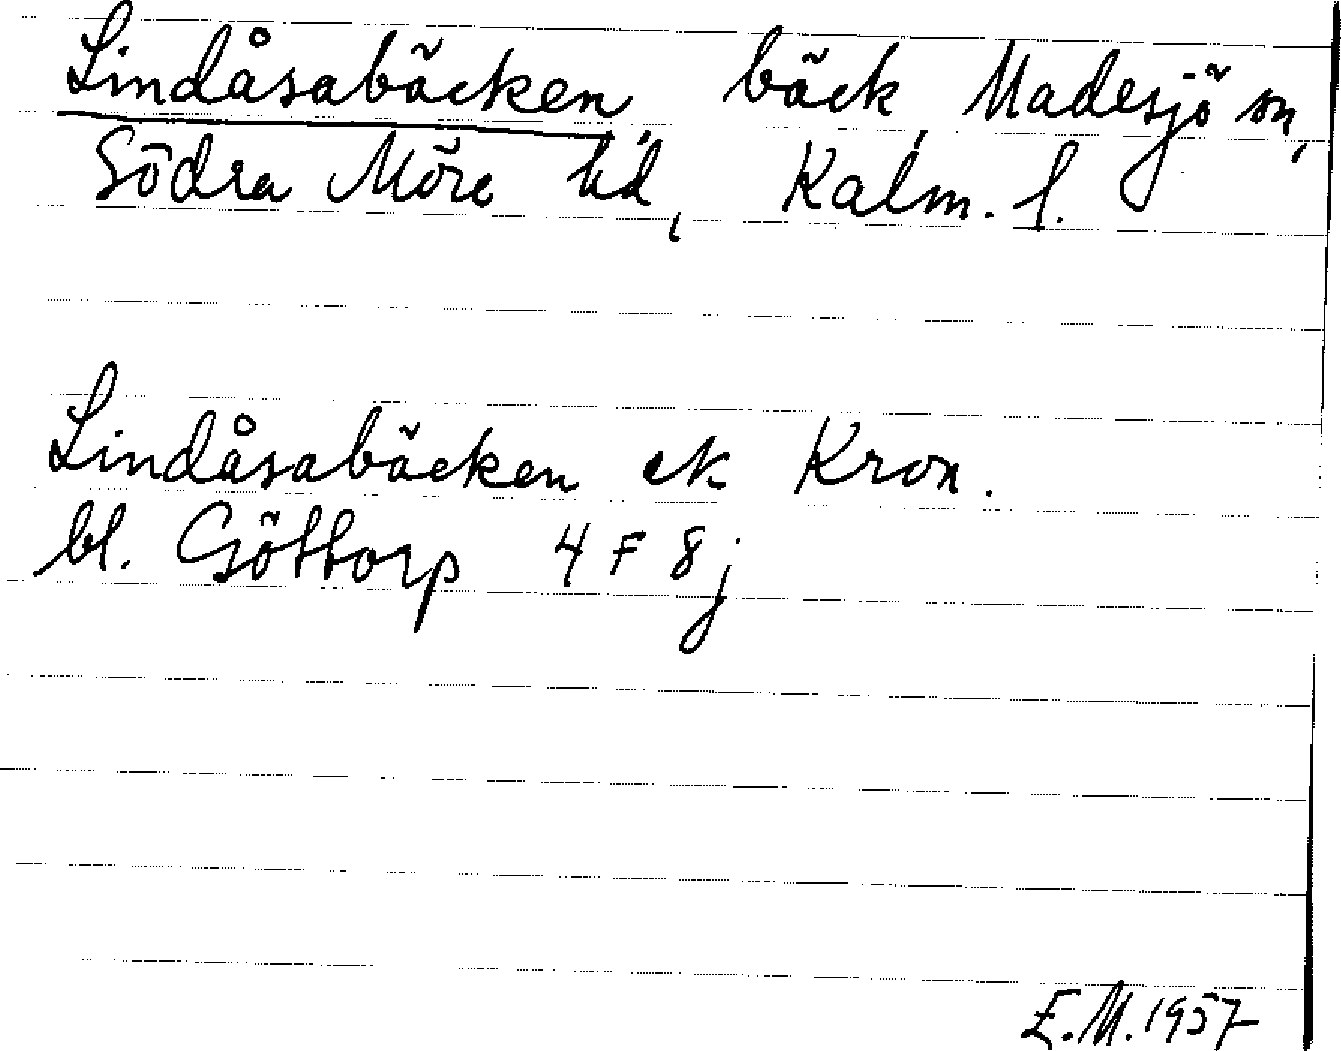 Lindåsabäcken, bäck, Madesjö sn,
Södra Möre hd, Kalm. l.
Lindåsabäcken ek Kron.
bl. Göttorp 4 F 8 j
E.M. 1957